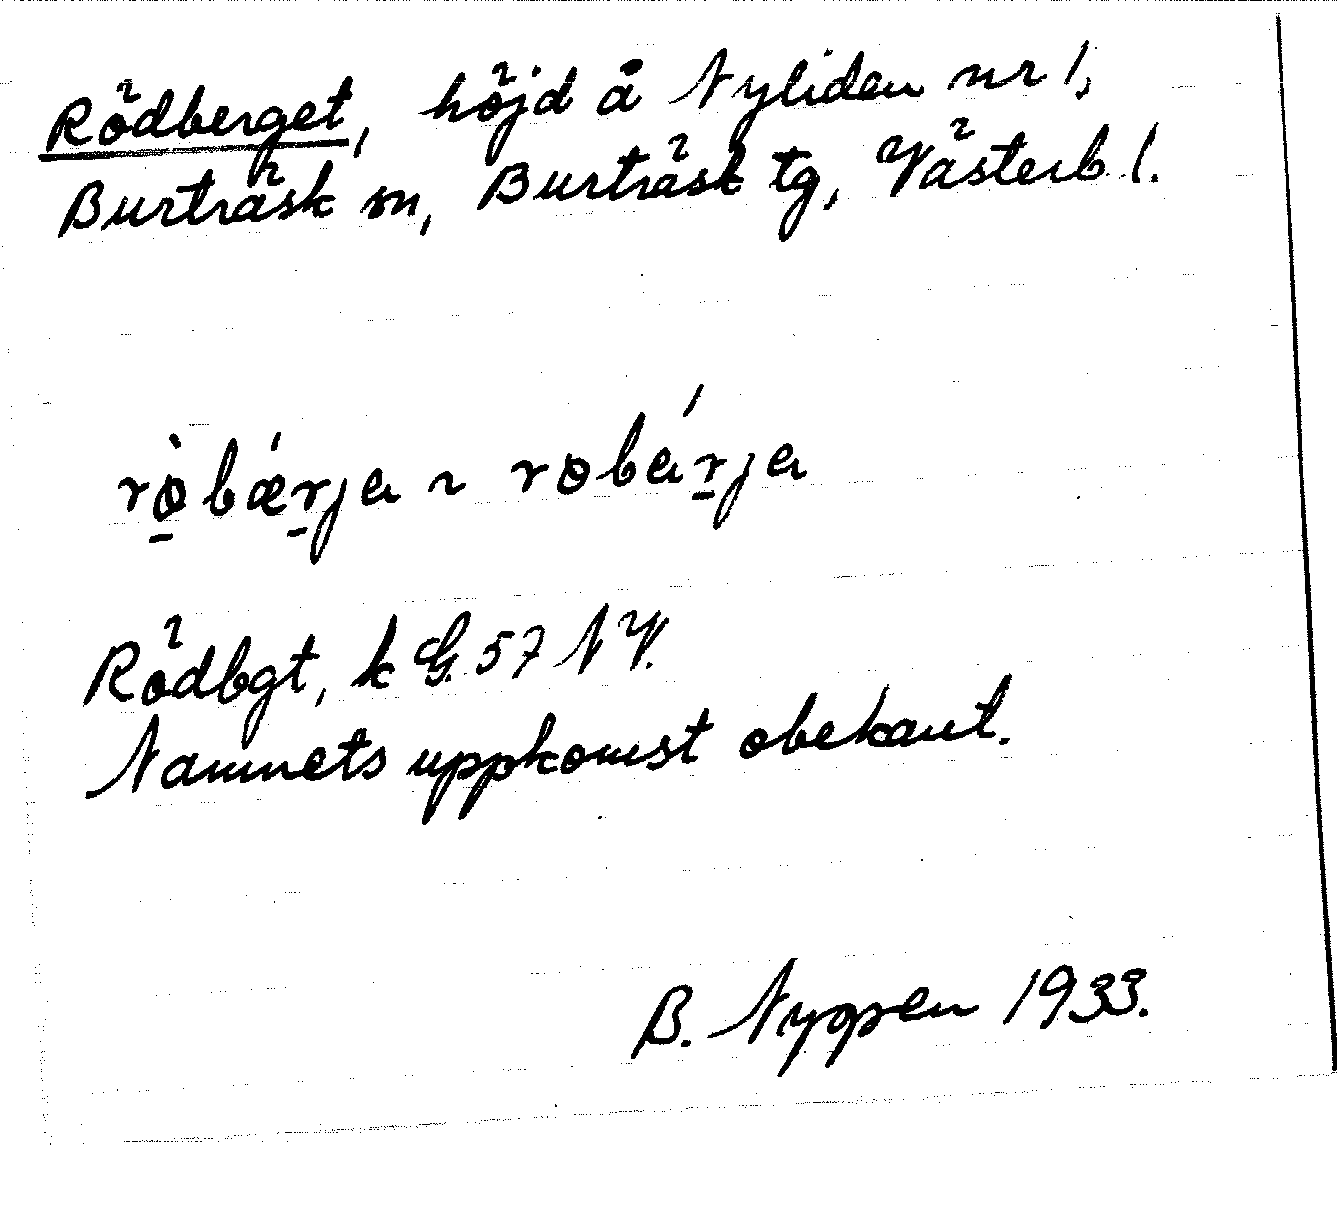 Rödberget, höjd å Nyliden nr 1,
Burträsk sn, Burträsk tg, Västerb l.
rö̀bǽr̠ja ~ robár̠ja
Rödbgt, k G. 57 NV.
Namnets uppkomst obekant.
B. Nygren 1933.